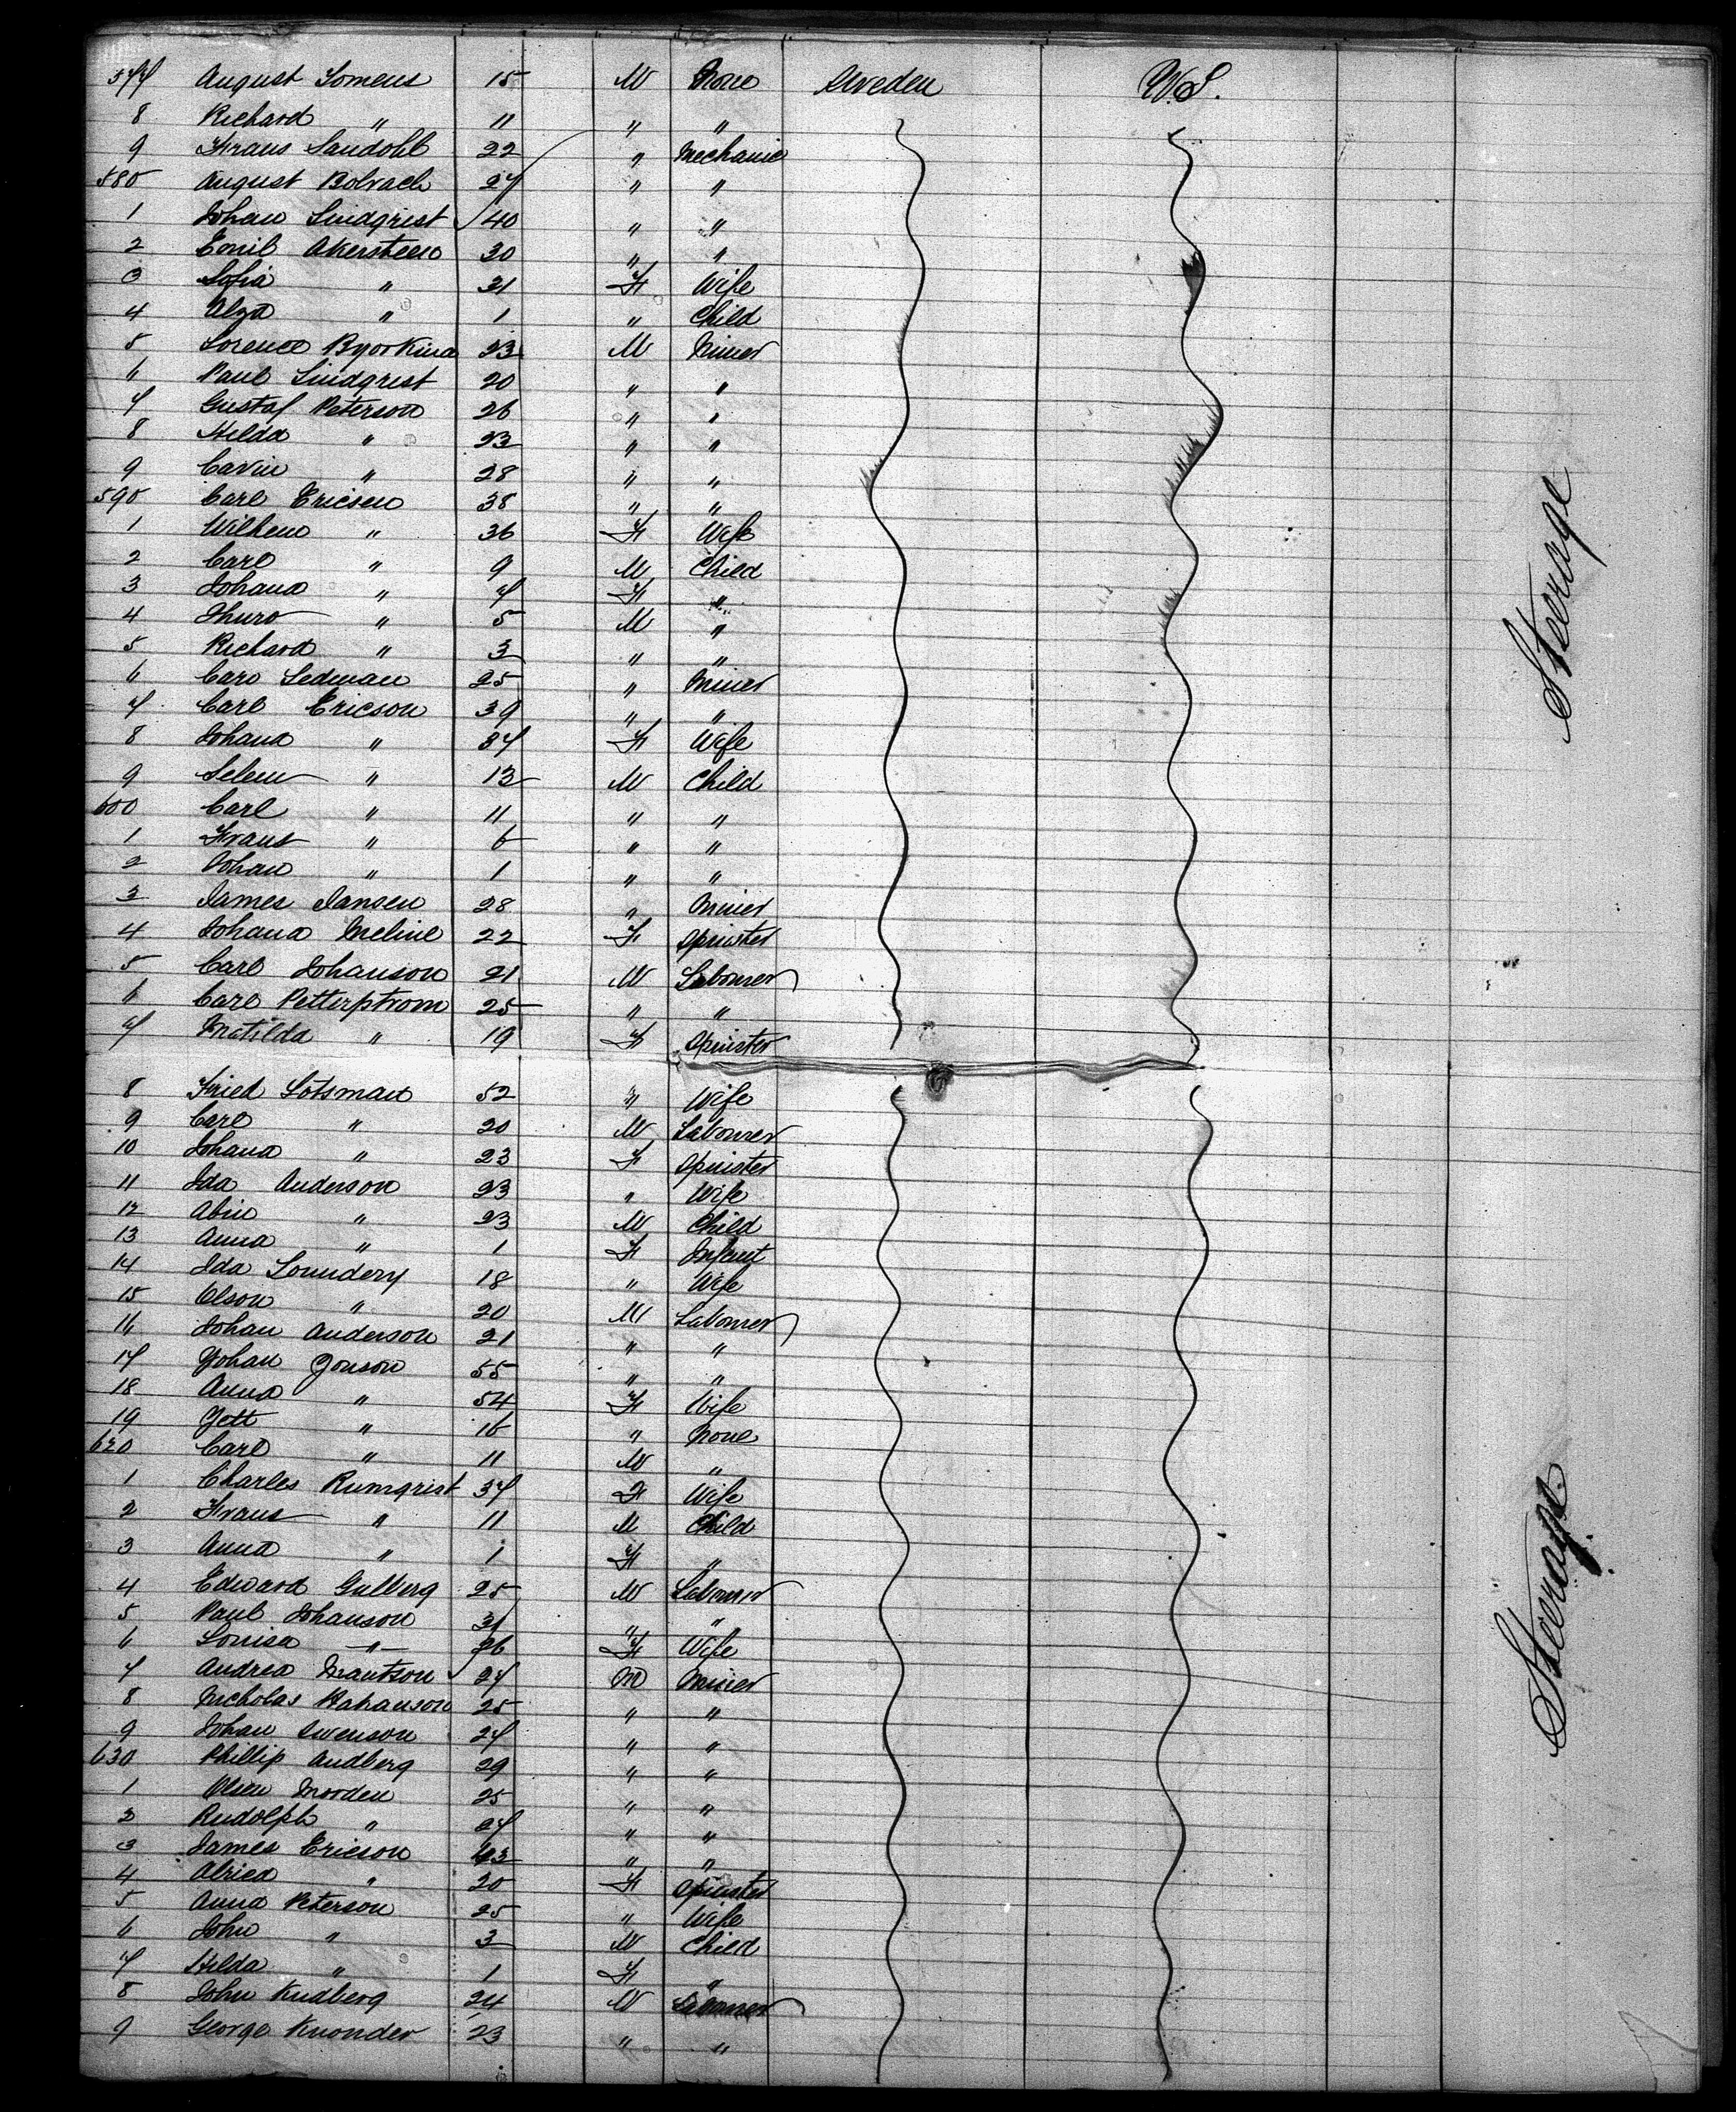 577 August Somens 15 M None Sweden U.S.
8 Richard " 11 " "
9 Frans Sandohl 22 " Mechanic
580 August Bolvach 27 " "
1 Johan Lindqrist 40 " "
2 Emil Akersteen 30 " "
3 Sofia " 31 F Wife
4 Alga " 1 " Child
5 Lorence Byorkina 23 M Miner
6 Paul Lindqrist 20 " "
7 Gustaf Peterson 26 " "
8 Hilda " 23 " "
9 Carin " 28 " "
590 Carl Ericsen 38 " "
1 Wilhem " 36 F Wife
2 Carl " 9 M Child
3 Johana " 7 F "
4 Thuro " 5 M "
5 Richard " 3 " "
6 Caro Sedman 25 " Miner
7 Carl Ericson 39 " "
8 Johana " 37 F Wife
9 Selem " 13 M Child
600 Carl " 11 " "
1 Frans " 6 " "
2 Johan " 1 " "
3 James Jansen 28 " Miner
4 Johana Meline 22 F Spinster
5 Carl Johanson 21 M Labourer
6 Carl Petterstrom 25 " "
7 Matilda " 19 F Spinster
8 Fried Lotsman 52 " Wife
9 Carl " 20 M Labourer
10 Johana " 23 F Spinster
11 Ida Anderson 23 " Wife
12 Abin " 23 M Child
13 Anna " 1 F Infant
14 Ida Loundery 18 " Wife
15 Olson " 20 M Labourer
16 Johan Anderson 21 " "
17 Yohan Jonson 55 " "
18 Anna " 54 F Wife
19 Jett " 16 " None
620 Carl " 11 M "
1 Charles Rumqrist 37 F Wife
2 Frans " 11 M Child
3 Anna " 1 F "
4 Edward Gulberg 25 M Labourer
5 Paul Johanson 31 " "
6 Louisa " 26 F Wife
7 Andrea Mantson 27 M Miner
8 Nicholas Rahanson 25 " "
9 Johan Swenson 27 " "
630 Phillip Audberg 29 " "
1 Olsen Morden 25 " "
2 Rudolph " 27 " "
3 James Ericson 43 " "
4 Alrica " 20 F Spinster
5 Anna Peterson 25 " Wife
6 John " 3 M Child
7 Hilda " 1 F "
8 John Kudberg 24 M Labourer
9 George Knonder 23 " "
Steerage
Steerage